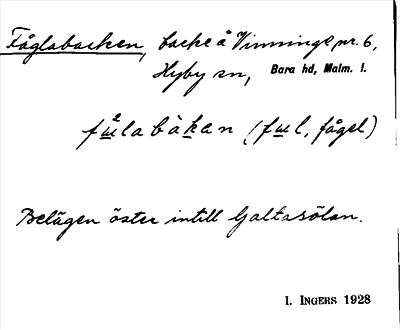 Fåglabacken, backe å Vinninge nr. 6,
Hyby sn, Bara hd, Malm. l.
fɯ̊labákan (fɯl, fågel)
Belägen öster intill Galtasölan.
I. INGERS 1928